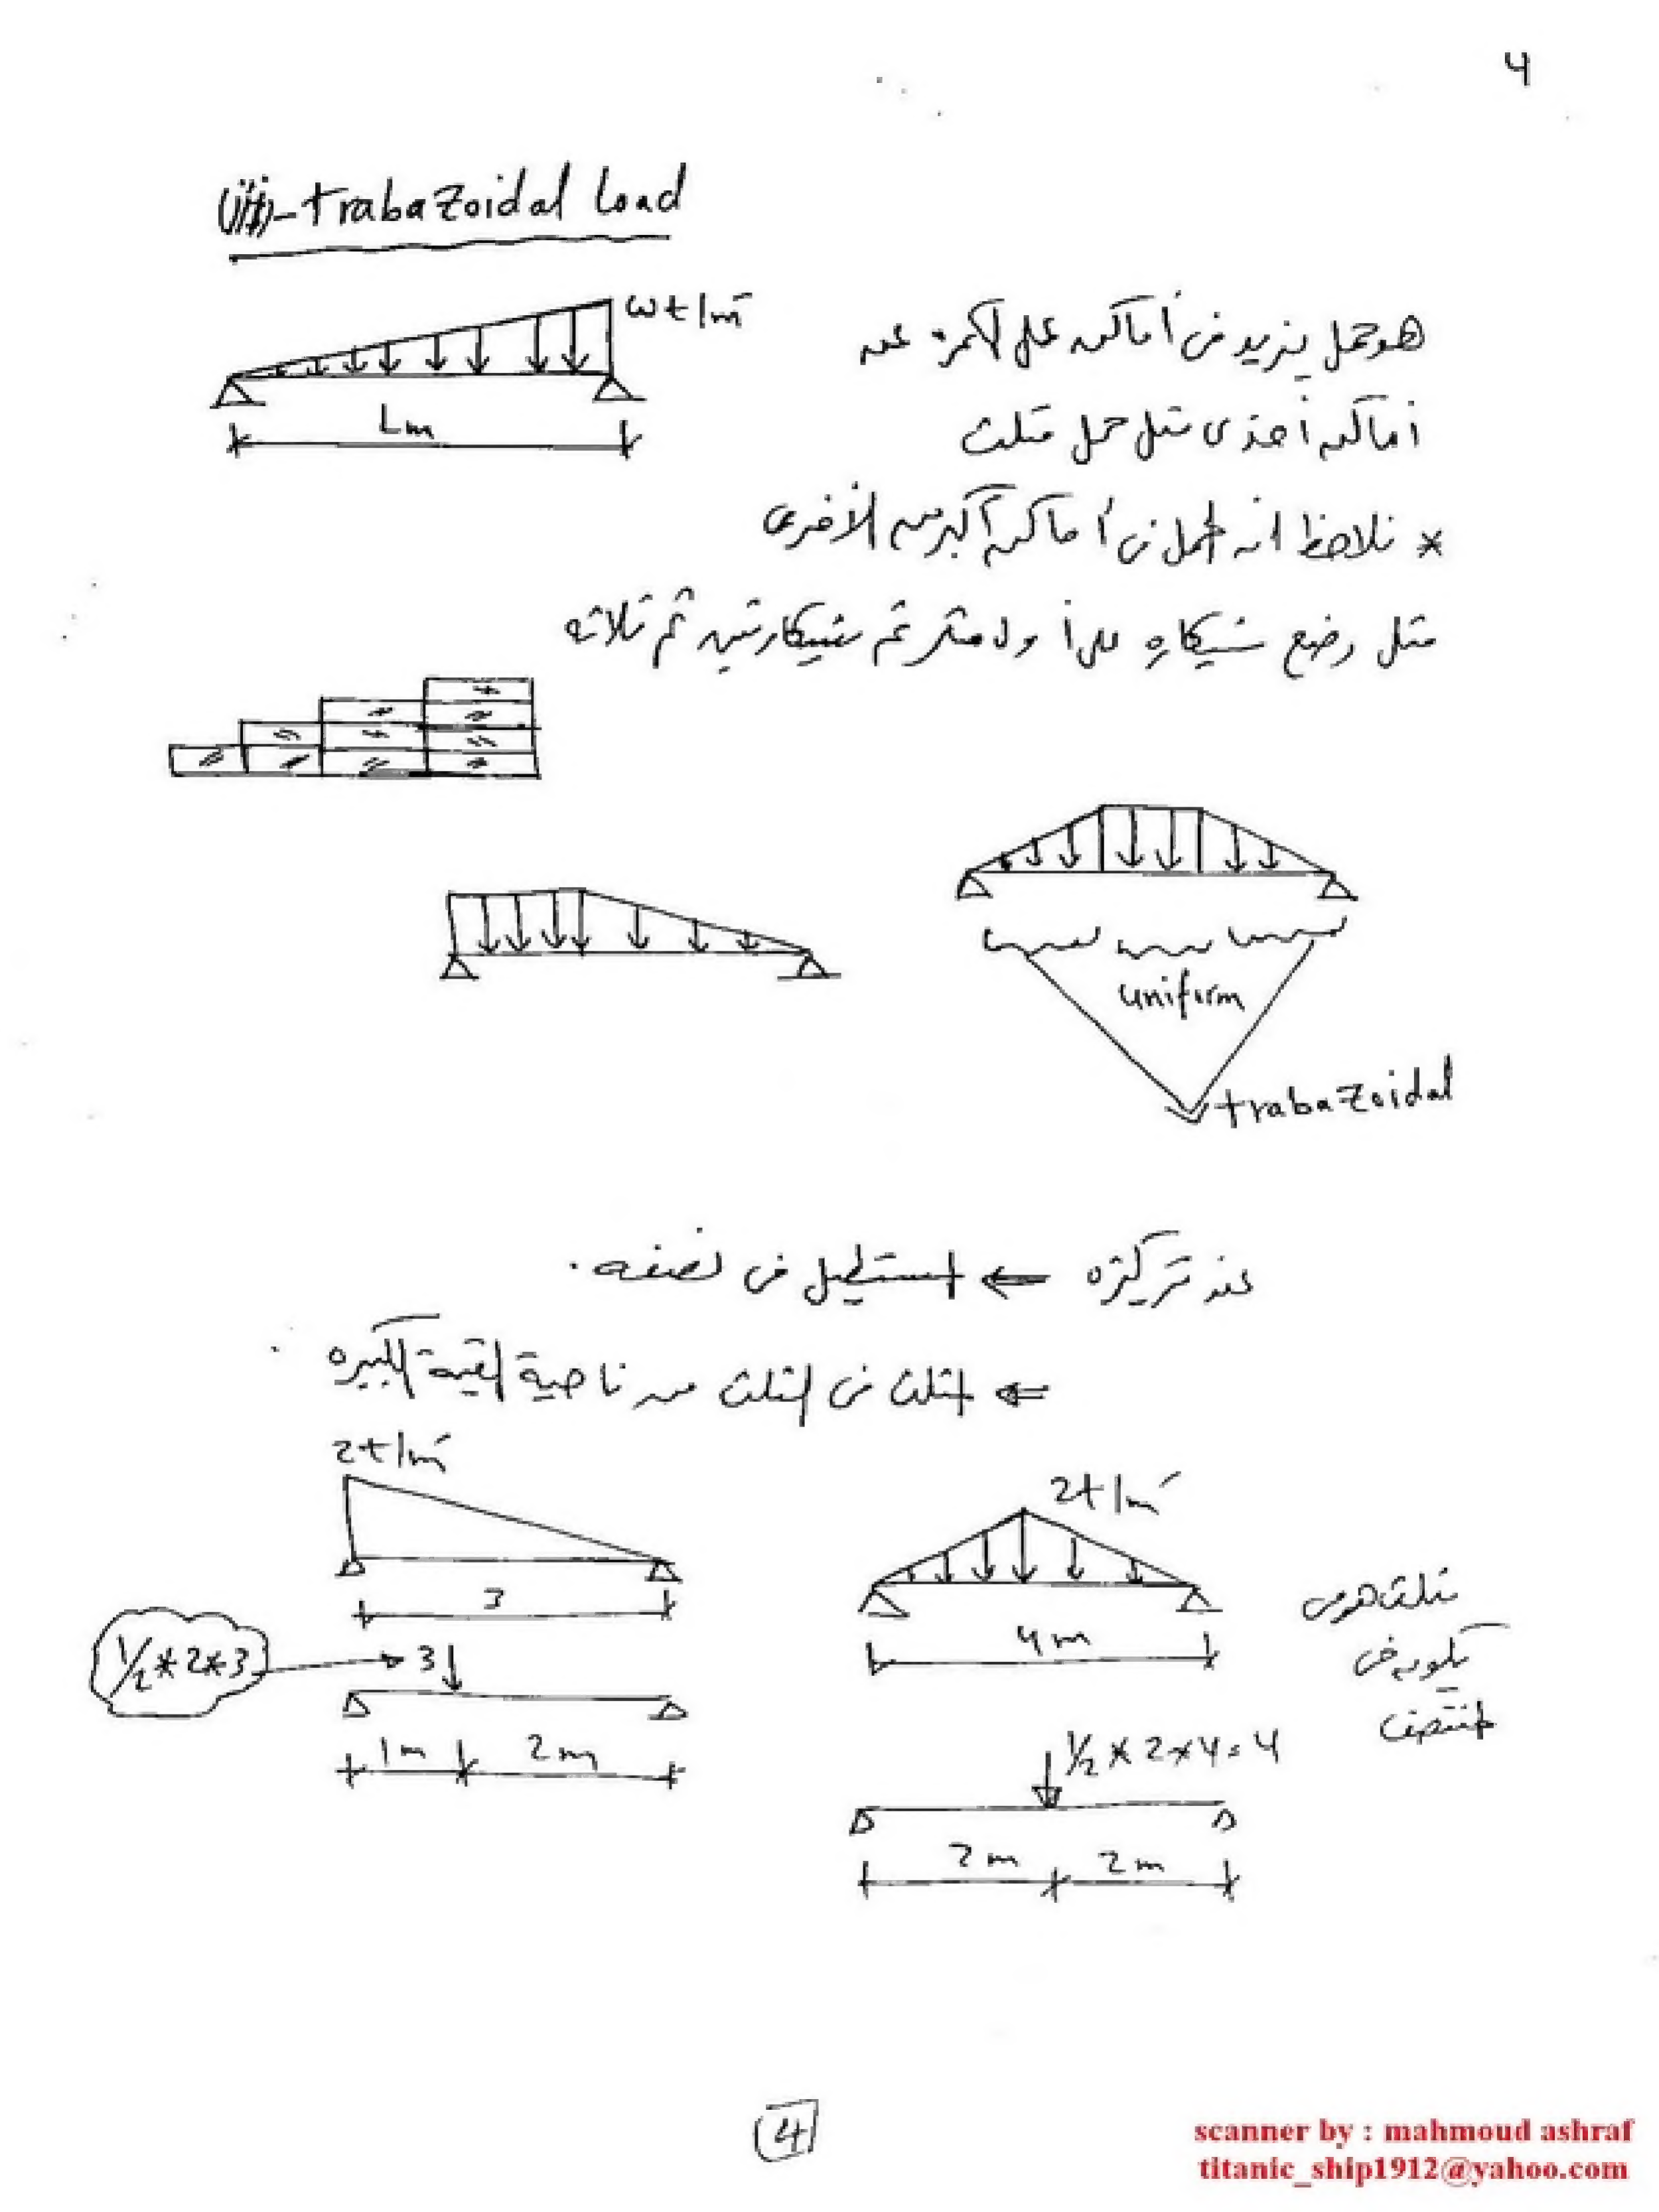 4
(iii)-trabazoidal load
wt/m'
Lm
هو حمل يزيد فى أماكن على الكمرة عن
أماكن أخرى مثل حمل مثلث
* نلاحظ ان الحمل فى أماكن أكبر من الأخرى
مثل وضع شيكاره على أول متر ثم شيكارتين ثم ثلاثه
uniform
trabazoidal
عند تركيزه ← المستطيل فى نصفه.
← المثلث فى الثلث من ناحية القيمة الكبيره
2t/m'
3
1/2*2*3
3
1m 2m
2t/m'
4m
مثلث هرمى
يكون فى
المنتصف
1/2*2*4=4
2m 2m
4
scanner by : mahmoud ashraf
titanic_ship1912@yahoo.com